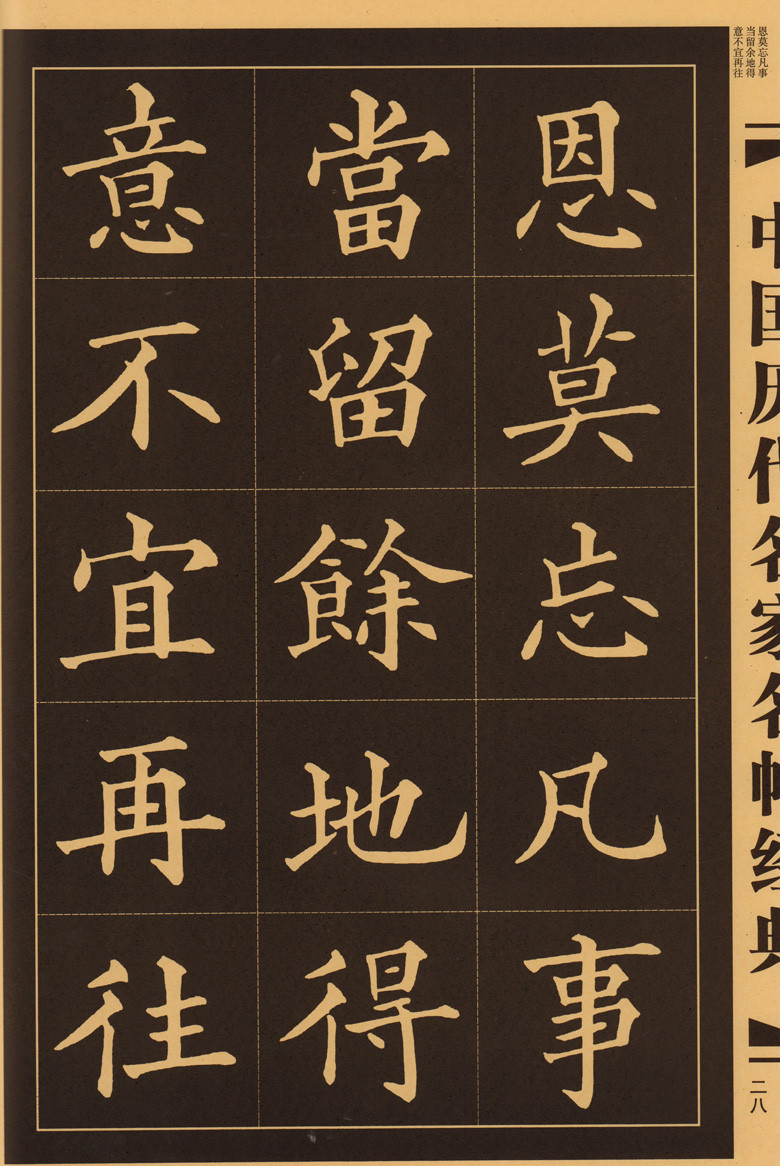 恩莫忘凡事
當留餘地得
意不宜再往
恩莫忘凡事
当留余地得
意不宜再往
中国历代名家名帖经典
二八